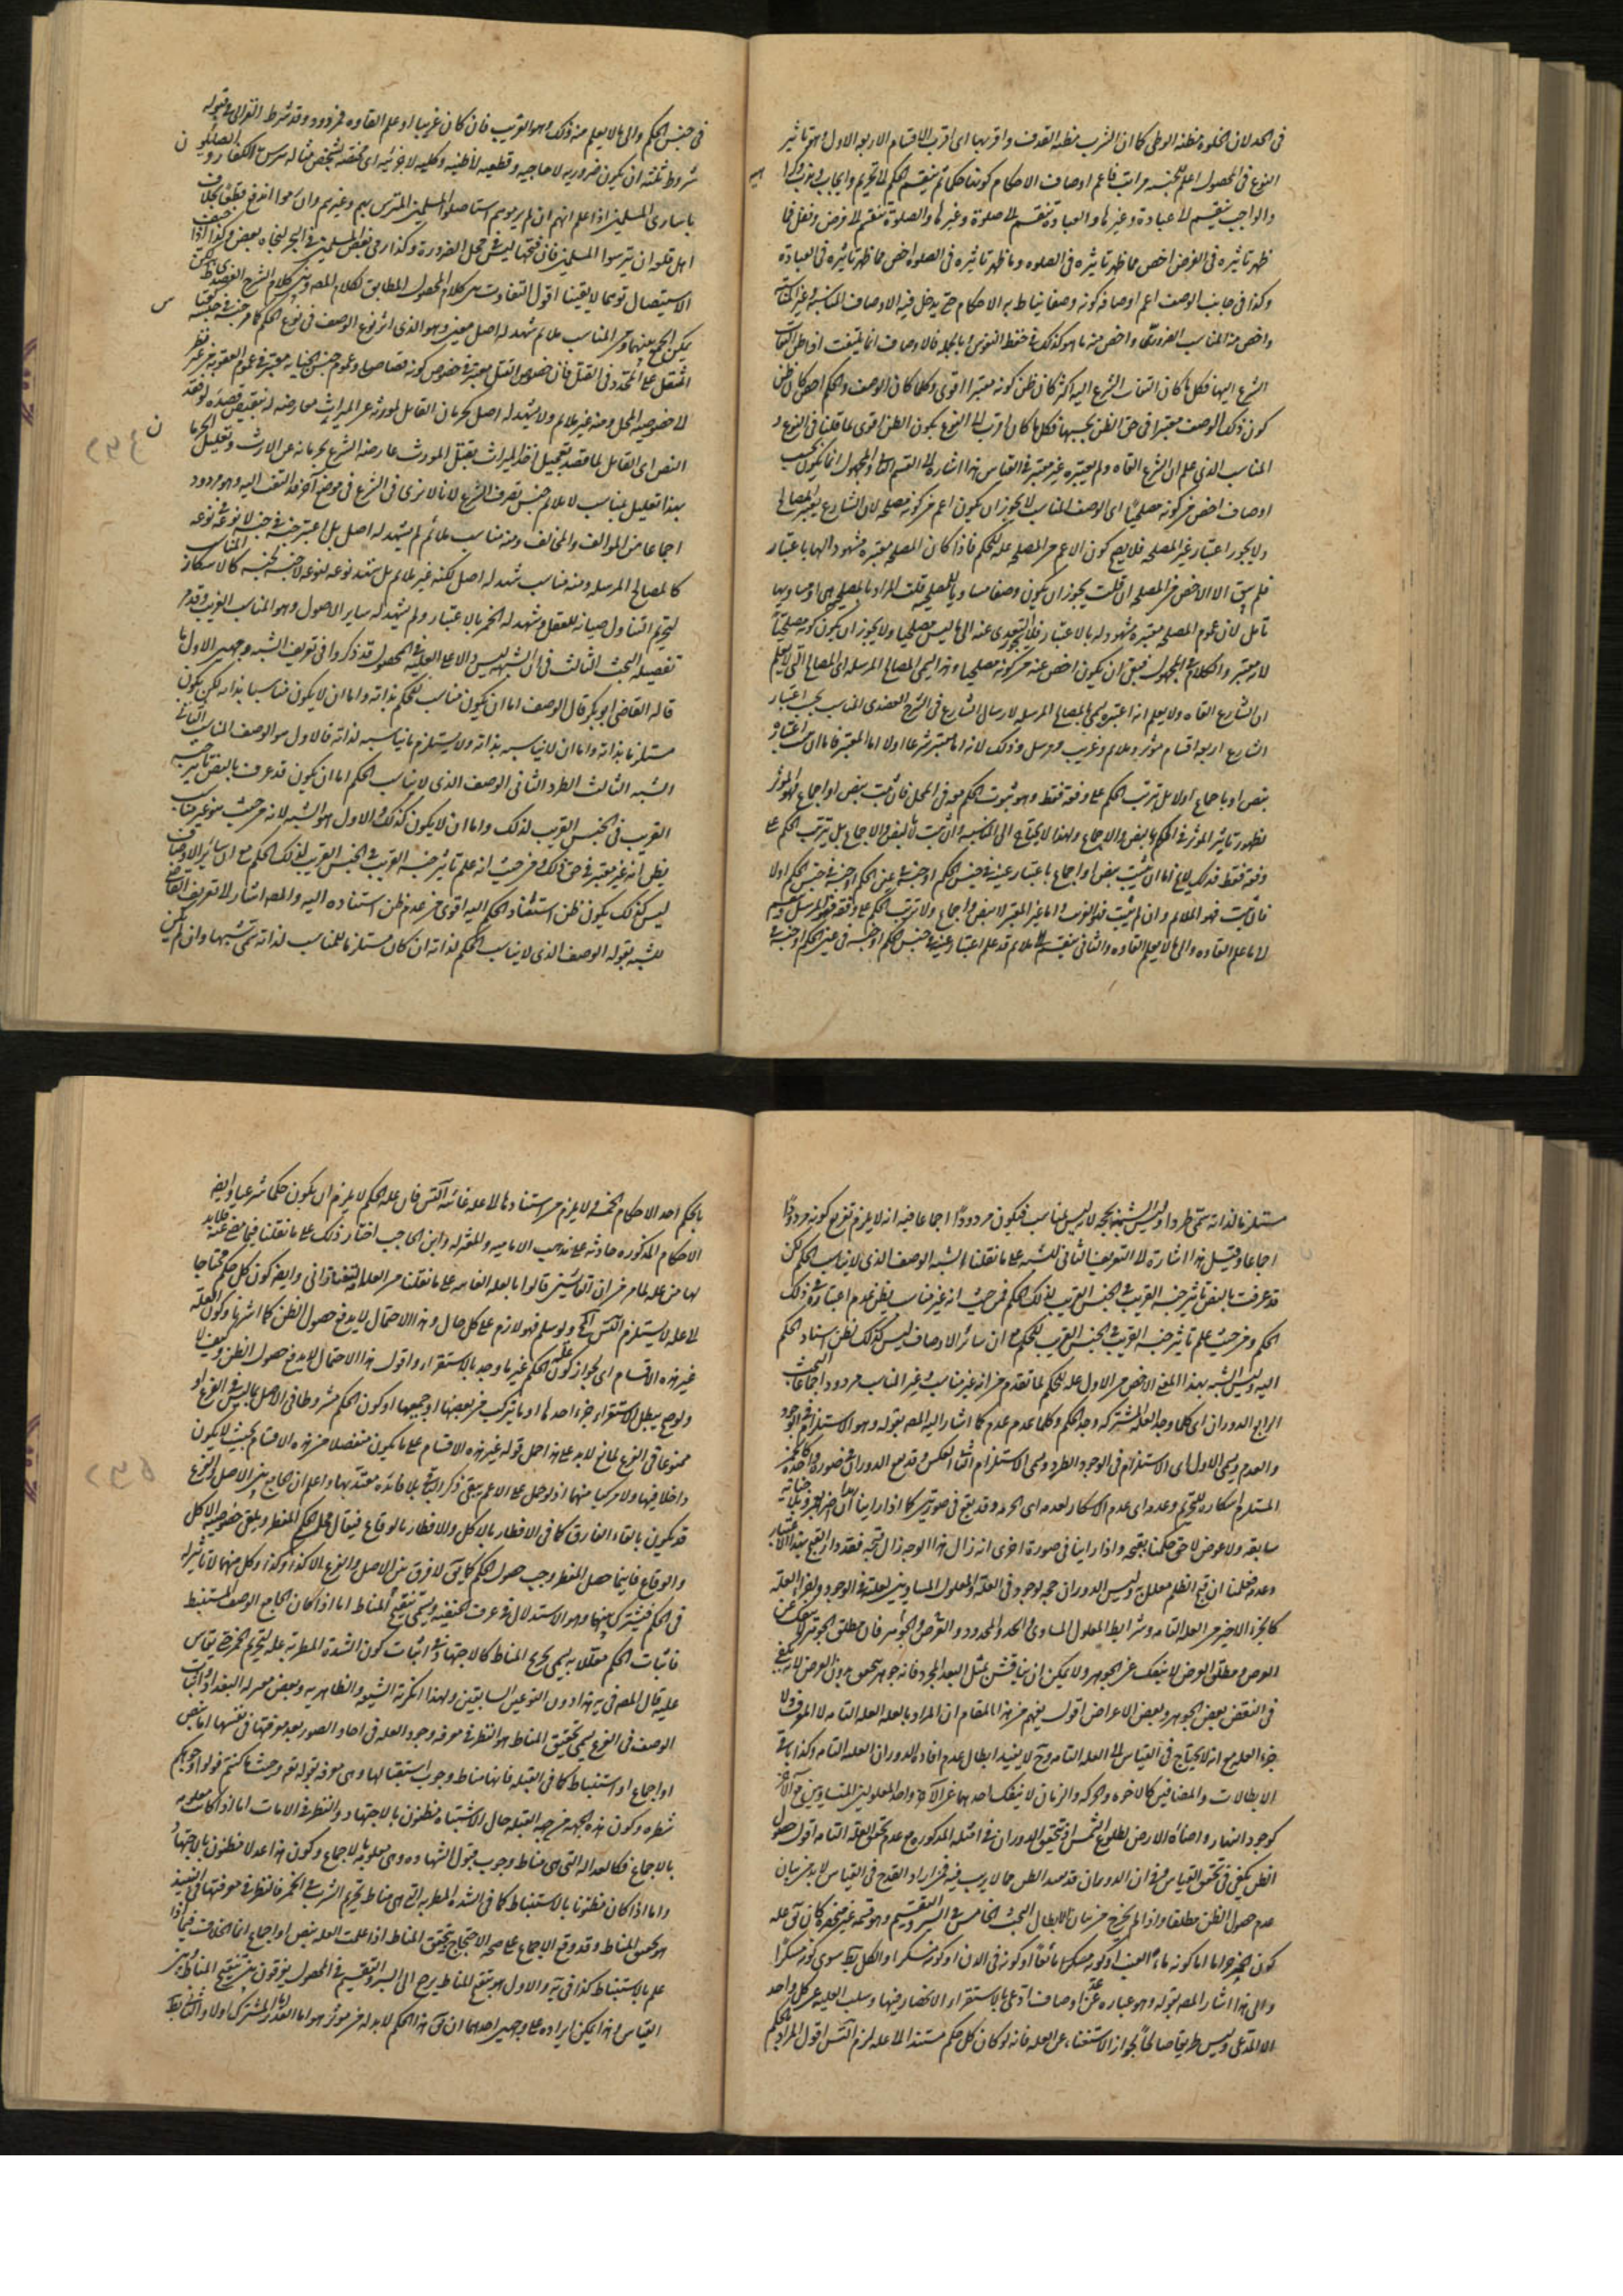 فى الحد لان الخلوة مظنه الوطى كما ان الشرب مظنه القذف واقربها اى اقرب الاقسام الاربعه الاول وهو تاثير
النوع فى المحصول اعلم للجنسيه مراتب فاعم اوصاف الاحكام كونها حكما ثم ينقسم الحكم الى تحريم وايجاب وندب وكراهيه
والواجب ينقسم الى عبادة وغيرها والعبادة تنقسم الى صلوة وغيرها والصلوة تنقسم الى فرض ونفل فما
ظهر تاثيره فى الفرض اخص مما ظهر تاثيره فى الصلوه وما ظهر تاثيره فى الصلوة اخص مما ظهر تاثيره فى العبادة
وكذا فى جانب الوصف اعم اوصافه كونه وصفا يناط به الاحكام حتى يدخل فيه الاوصاف المناسبة وغير المناسبة
واخص منه المناسب الضرورى واخص منه ما هو كذلك فى حفظ النفوس وبالجمله فالاوصاف انما يلتفت اذا ظن التفات
الشرع اليها فكلما كان التفات الشرع اليه اكثر كان ظن كونه معتبرا اقوى وكلما كان الوصف والحكم اخص كان ظن
كون ذلك الوصف معتبرا فى حق الظن بحسبها فكلما كان اقرب الى النوع يكون الظن اقوى لما قلنا فى النوع و
المناسب الذى علم ان الشرع الغاه ولم يعتبره غير معتبر فى القياس هذا اشارة الى القسم الثانى والمجهول انما يكون بحسب
اوصاف اخص من كونه مصلحيا اى الوصف المناسب لا يجوز ان يكون اعم من كونه مصلحه لان الشارع يعتبر المصالح
ولا يجوز اعتبار غير المصلحه فلا يصح كون الاعم من المصلحه عله للحكم فاذا كان المصلحه معتبره مشهودا لها باعتبار
فلم يبق الا الاخص من المصلحه ان قلت يجوز ان يكون وصفا مساويا للمصلحه قلت المراد بالمصلحه هى او مساويها
تامل لان عموم المصلحه معتبره مشهود له بالاعتبار فلا يجوز التعدى عنه الى ما ليس مصلحيا ولا يجوز ان يكون كونه مصلحيا
لانه معتبر والكلام فى المجهول فبقى ان يكون اخص عنه من كونه مصلحيا وهذا يسمى المصالح المرسله اى المصالح التى لا يعلم
ان الشارع الغاه ولا يعلم انه اعتبره يسمى بالمصالح المرسله لارسال الشارع فى الشرح العضدى المناسب بحسب اعتبار
الشارع اربعه اقسام مؤثر وملايم وغريب ومرسل وذلك لانه اما معتبر شرعا او لا اما المعتبر فاما ان يثبت اعتباره
بنص او باجماع او لا بل ترتب الحكم على وفقه فقط وهو ثبوت الحكم معه فى المحل فان ثبت بنص او اجماع فهو المؤثر
لظهور تاثير المؤثر فى الحكم بالنص والاجماع ولهذا لا يحتاج الى المناسبه وان ثبت لا بالنص والاجماع بل بترتب الحكم على
وفقه فقط فذلك لا يخ اما ان يثبت بنص او اجماع باعتبار عينه فى جنس الحكم او جنسه فى عين الحكم او جنسه فى جنس الحكم او لا
فان ثبت فهو الملايم وان لم يثبت فهو الغريب واما غير المعتبر لا بنص ولا اجماع ولا ترتب الحكم على وفقه فهو المرسل وينقسم
الى ما علم الغاوه والى ما لا يعلم الغاوه والثانى ينقسم الى ملايم قد علم اعتبار عينه فى جنس الحكم او جنسه فى عين الحكم او جنسه
فى جنس الحكم والى ما لا يعلم منه ذلك وهو الغريب فان كان غريبا او علم الغاوه فمردود وقد شرط الغزالى فى قبوله
شروط ثلثه ان يكون ضروريه لا حاجيه وقطعيه لا ظنيه وكليه لا جزئيه اى مختصه بشخص مثاله تترس الكفار
باسارى المسلمين اذا علم انهم ان لم يرموهم استاصلوا المسلمين المترس بهم وغيرهم وان رموا اندفع قطعا بخلاف
اهل قلعه ان تترسوا المسلمين فان فتحها ليس فى محل الضرورة وكذا رمى بعض المسلمين فى البحر لنجاة بعض وكذا اذا
الاستيصال توهما لا يقينا اقول التفاوت بين كلام المحصول المطابق لكلام المص وبين كلام الشرح العضدى
يمكن الجمع بينهما ومن المناسب ملائم شهد له اصل معين وهو الذى اثر نوع الوصف فى نوع الحكم كما مر جنسه فى جنسه
المثقل على المحدد فى القتل فان خصوص القتل معتبر فى خصوص كونه قصاصا وعموم جنس الجنايه معتبر فى عموم العقوبه
الى خصوصيه المحل ومنه غير ملايم ولا يشهد له اصل كحرمان القاتل لمورثه عن الميراث معارضه له بنقيض قصده لو فقد
النص اى القاتل لما قصد تعجيل اخذ الميراث بقتل المورث عارضه الشرع بحرمانه عن الارث وتعليل الحرمان
بهذا تعليل بمناسب لا يلايم جنس تصرف الشرع لانا لا نرى فى الشرع فى موضع آخر قد التفت اليه وهو مردود
اجماعا من الموالف والمخالف ومنه مناسب ملائم لم يشهد له اصل بل اعتبر جنسه فى جنسه لا نوعه فى نوعه
كالمصالح المرسله ومنه مناسب شهد له اصل لكنه غير ملايم بل شهد نوعه لنوعه لا جنسه لجنسه كالاسكار المناسب
لتحريم التناول صيانه للعقل وشهد له الخمر بالاعتبار ولم يشهد له ساير الاصول وهو المناسب الغريب وقد مر
تفصيله البحث الثالث فى ان الشبه ليس دالا على العليه فى المحصول قد ذكروا فى تعريف الشبه وجهين الاول ما
قاله القاضى ابو بكر قال الوصف اما ان يكون مناسب للحكم بذاته واما ان لا يكون مناسبا بذاته لكن يكون
مستلزما بذاته واما ان لا يناسبه بذاته ولا يستلزم ما يناسبه لذاته فالاول هو الوصف المناسب الثانى
الشبه الثالث الطرد الثانى الوصف الذى لا يناسب الحكم اما ان يكون قد عرف بالنص تاثير جنسه
القريب فى الجنس القريب لذلك واما ان لا يكون كذلك والاول هو الشبه لانه من حيث هو غير مناسب
يظن انه غير معتبر فى حق ذلك ومن حيث انه علم تاثير جنسه القريب فى الجنس القريب لذلك الحكم مع ان سائر الاوصاف
ليس كذلك يكون ظن استناد الحكم اليه اقوى من عدم ظن استناده اليه والمص اشار الى تعريف القاضى
للشبه بقوله الوصف الذى لا يناسب الحكم لذاته ان كان مستلزما للمناسب لذاته سمى شبها وان لم يكن
مستلزما لذاته سمى طردا وليس الشبه بحجه لانه ليس بمناسب فيكون مردودا اجماعا فيه انه لا يلزم تفرع كونه مردودا
اجماعا وقيل هذا اشارة الى التعريف الثانى للشبه على ما نقلنا الشبه الوصف الذى لا يناسب الحكم لكن
قد عرفت بالنص تاثير جنسه القريب فى الجنس القريب لذلك الحكم فمن حيث انه غير مناسب يظن عدم اعتباره فى ذلك
الحكم ومن حيث علم تاثير جنسه القريب فى الجنس القريب للحكم مع ان سائر الاوصاف ليس كذلك يظن اسناد الحكم
اليه وليس الشبه بهذا المعنى الاخص من الاول عله للحكم لما تقدم من انه غير مناسب وغير المناسب مردود اجماعا البحث
الرابع الدوران اى كلما وجد العله المشتركه وجد الحكم وكلما عدم عدم كما اشار اليه المص بقوله وهو الاستلزام فى الوجود
والعدم ويسمى الاول اى الاستلزام فى الوجود الطرد ويسمى الاستلزام الثانى العكس وقد يقع الدوران فى صورة واحدة كالخمر
المستلزم اسكاره للتحريم وعدمه اى عدم الاسكار لعدمه اى الحرمه وقد يقع فى صورتين كما اذا راينا
سابقه ولا عوض لاحق حكمنا بقبحه واذا راينا فى صورة اخرى انه زال هذا الوجه زال قبحه فقد دار القبح بهذا الاعتبار
وعدمه فعلمنا ان قبح الظلم معلل به وليس الدوران حجه لوجوده فى العلة والمعلول المساويين لعلته فى الوجود وجزء العله
كالجزء الاخير من العله التامه وشرايط المعلول المساوى والحد والمحدود والعرض والجوهر فان مطلق الجوهر لا ينفك عن
العرض ومطلق العرض لا ينفك عن الجوهر ولا يمكن ان يناقش بمثل البعد المجرد فانه جوهر يتحقق بدون العرض لانه يكفى
فى النقض بعض الجوهر وبعض الاعراض اقول يفهم من هذا المقام ان المراد بالعله العله التامه لا المعرف ولا
جزء العله مع انه لا يحتاج فى القياس الى العله التامه وح لا يفيد ابطال عدم افادة الدوران العله التامه وكذا باقى
الابطالات والمضافين كالاخوه والحركه والزمان لا ينفك احدهما عن الآخر واحد المعلولين المتساويين مع الآخر
كوجود النهار واضاءة الارض لطلوع الشمس اذ تحقيق الدوران فى امثله المذكوره مع عدم تحقق العله التامه اقول حصول
الظن يكفى فى تحقق القياس فى الدوران قد يفيد الظن مما لا ريب فيه فمن اراد القدح فى القياس لا بد من بيان
عدم حصول الظن مطلقا واذا لم يخرج من بيان الابطال البحث الخامس فى السبر والتقسيم وهو قسمه غير منحصره كان يق عله
كون الخمر حراما اما كونه ماء العنب او كونه مسكرا مائعا او كونه فى الدن او كونه مسكرا والكل بط سوى كونه مسكرا
والى هذا اشار المص بقوله وهو عباره عن عد اوصاف ادعى بالاستقراء الانحصار فيها وسلب العليه عن كل واحد
الا المدعى وليس طريقا صالحا لجواز الاستغناء عن العله فانه لو كان كل حكم مستندا الى عله لزم التس اقول المراد بالحكم
بالحكم احد الاحكام الخمسه ولا يلزم من استنادها الى عله غائيه التس فان عله الحكم لا يلزم ان يكون حكما شرعيا وايضا
الاحكام المذكوره حادثه على مذهب الاماميه والمعتزله وابن الحاجب اختار ذلك على ما نقلنا فيما مضى عنه فلا بد
لها من عله لما مر من ان القائسين قالوا بالعله الغائيه على ما نقلنا من العلامه التفتازانى وايضا كون كل حكم محتاجا
الى عله لا يستلزم التس ولو سلم فهو لازم على كل حال وهذا الاحتمال لا يدفع حصول الظن كما اشرنا وكون العله
غير هذه الاقسام اى لجواز كون عله الحكم غير ما وجد بالاستقراء واقول هذا الاحتمال لا يدفع حصول الظن وكيف لا
ولو صح يبطل الاستقراء جزء احدها او ما يتركب من بعضها او جميعها او كون الحكم مشروطا فى الاصل بما ليس فى الفرع او
ممنوعا فى الفرع لمانع لا بد على هذا حمل قوله غير هذه الاقسام على ما يكون منفصلا من هذه الاقسام بحيث لا يكون
داخلا فيها ولا مركبا منهما اذ لو حمل على الاعم يبقى ذكر الباقى بلا فائده معتد بها واعلم ان الجامع بين الاصل والفرع
قد يكون بالغاء الفارق كما فى الافطار بالاكل والافطار بالوقاع فيقال محل الحكم المفطر ويلغى خصوصيه الاكل
والوقاع فاينما حصل المفطر وجب حصول الحكم كما يق لا فرق بين الاصل والفرع الا كذا وكذا وكل منهما لا تاثير له
فى الحكم فيشترك بينهما وهو الاستدلال فى عرف الحنفيه ويسمى تنقيح المناط اما اذا كان الجامع الوصف المستنبط
فاثبات الحكم معللا به يسمى تخريج المناط كالاجتهاد فى اثبات كون الشدة المطربه عله لتحريم الخمر حتى يقاس
عليه قال المص فى يه هذا دون النوعين السابقين ولهذا انكرته الشيعه والظاهريه وبعض معتزله البغداد واثبات
الوصف فى الفرع يسمى تحقيق المناط هو النظر فى معرفه وجود العله فى احاد الصور بعد معرفتها فى نفسها اما بنص
او اجماع او استنباط كما فى القبله فانها مناط وجوب استقبالها وهى معرفه بقوله تعه وحيث ما كنتم فولوا وجوهكم
شطره وكون هذه الجهه هى جهه القبله حال الاشتباه مظنون بالاجتهاد والنظر فى الامارات اما اذا كانت معلومه
بالاجماع فكالعداله التى هى مناط وجوب قبول الشهاده وهى معلومه بالاجماع وكون هذا عدلا مظنون بالاجتهاد
واما اذا كان مظنونا بالاستنباط كما فى الشدة المطربه التى هى مناط تحريم الشرب فى الخمر فالنظر فى معرفتها فى النبيذ
هو تحقيق المناط وقد وقع الاجماع على صحه الاحتجاج بتحقيق المناط اذا علمت العله بنص او اجماع انما الخلاف فيما اذا
علم بالاستنباط كذا فى يه والاول هو تنقيح المناط يرجع الى السبر والتقسيم فى المحصول يفرقون بين تنقيح المناط وبين
القياس وهذا يمكن ايراده على وجهين احدهما ان يق هذا الحكم لا بد له من مؤثر هو اما القدر المشترك او لا والثانى بط